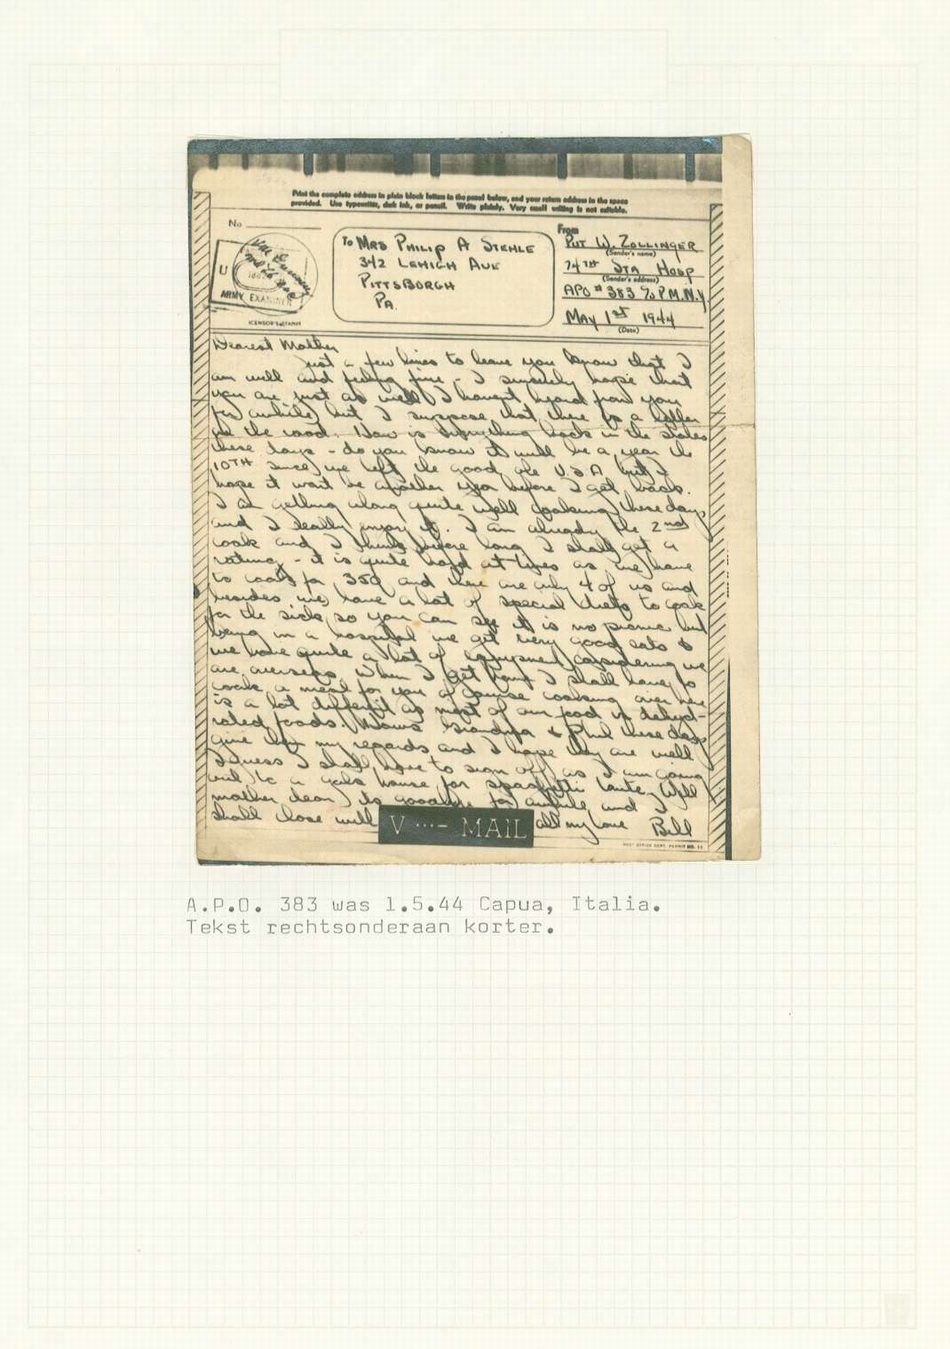 Print the complete address in plain block letters in the panel below, and your return address in the space
provided. Use typewriter, dark ink, or pencil. Write plainly. Very small writing is not suitable.
No.
To Mrs Philip A Stehle
342 Lehigh Ave
Pittsborgh
Pa.
From
Pvt W. Zollinger
(Sender's name)
74th Sta Hosp
(Sender's address)
APO # 383 % P.M. N.Y
May 1st 1944
(Date)
U
ARMY EXAMINER
(CENSOR'S STAMP)
Dearest Mother
Just a few lines to leave you know that I
am well and feeling fine - I sincerely hope that
you are just as well. I havent heard from you
for awhile but I suppose that there is a letter
on the road. How is everything back in the states
these days - do you know it will be a year the
10TH since we left the good ole U.S.A but I
hope it wont be another year before I get back.
I am getting along quite well cooking these days
and I really enjoy it. I am already the 2nd
cook and I think before long I shall get a
rating - it is quite hard at times as we have
to cook for 350 and there are only 4 of us and
besides we have a lot of special diets to cook
for the sick so you can see it is no picnic but
being in a hospital we get very good eats &
we have quite a lot of equipment considering we
are overseas. When I get home I shall have to
cook a meal for you of course cooking over here
is a lot different as most of our food is dehyd-
rated foods. Hows Grandma & Phil these days
give them my regards and I hope they are well
I guess I shall have to sign off as I am going
to a gals house for spaghetti Well
mother dear its goodbye for awhile and I
shall close with all my love Bill
V ···- MAIL
A.P.O. 383 was 1.5.44 Capua, Italia.
Tekst rechtsonderaan korter.